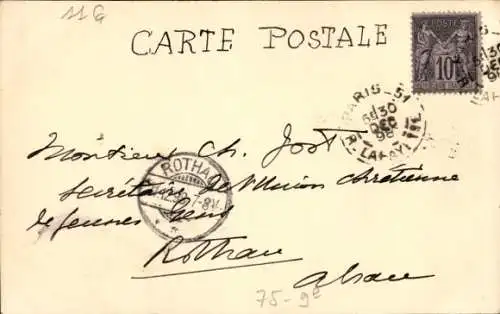 116
CARTE POSTALE
POSTE
10
PARIS_51
6E 30
DEC
98
R. LAFAYETTE
Monsieur Ch. Jost
ROTHAU
7-8V.
Secrétaire de l'Union chrétienne
de jeunes Gens
Rothau
Alsace
75-9e